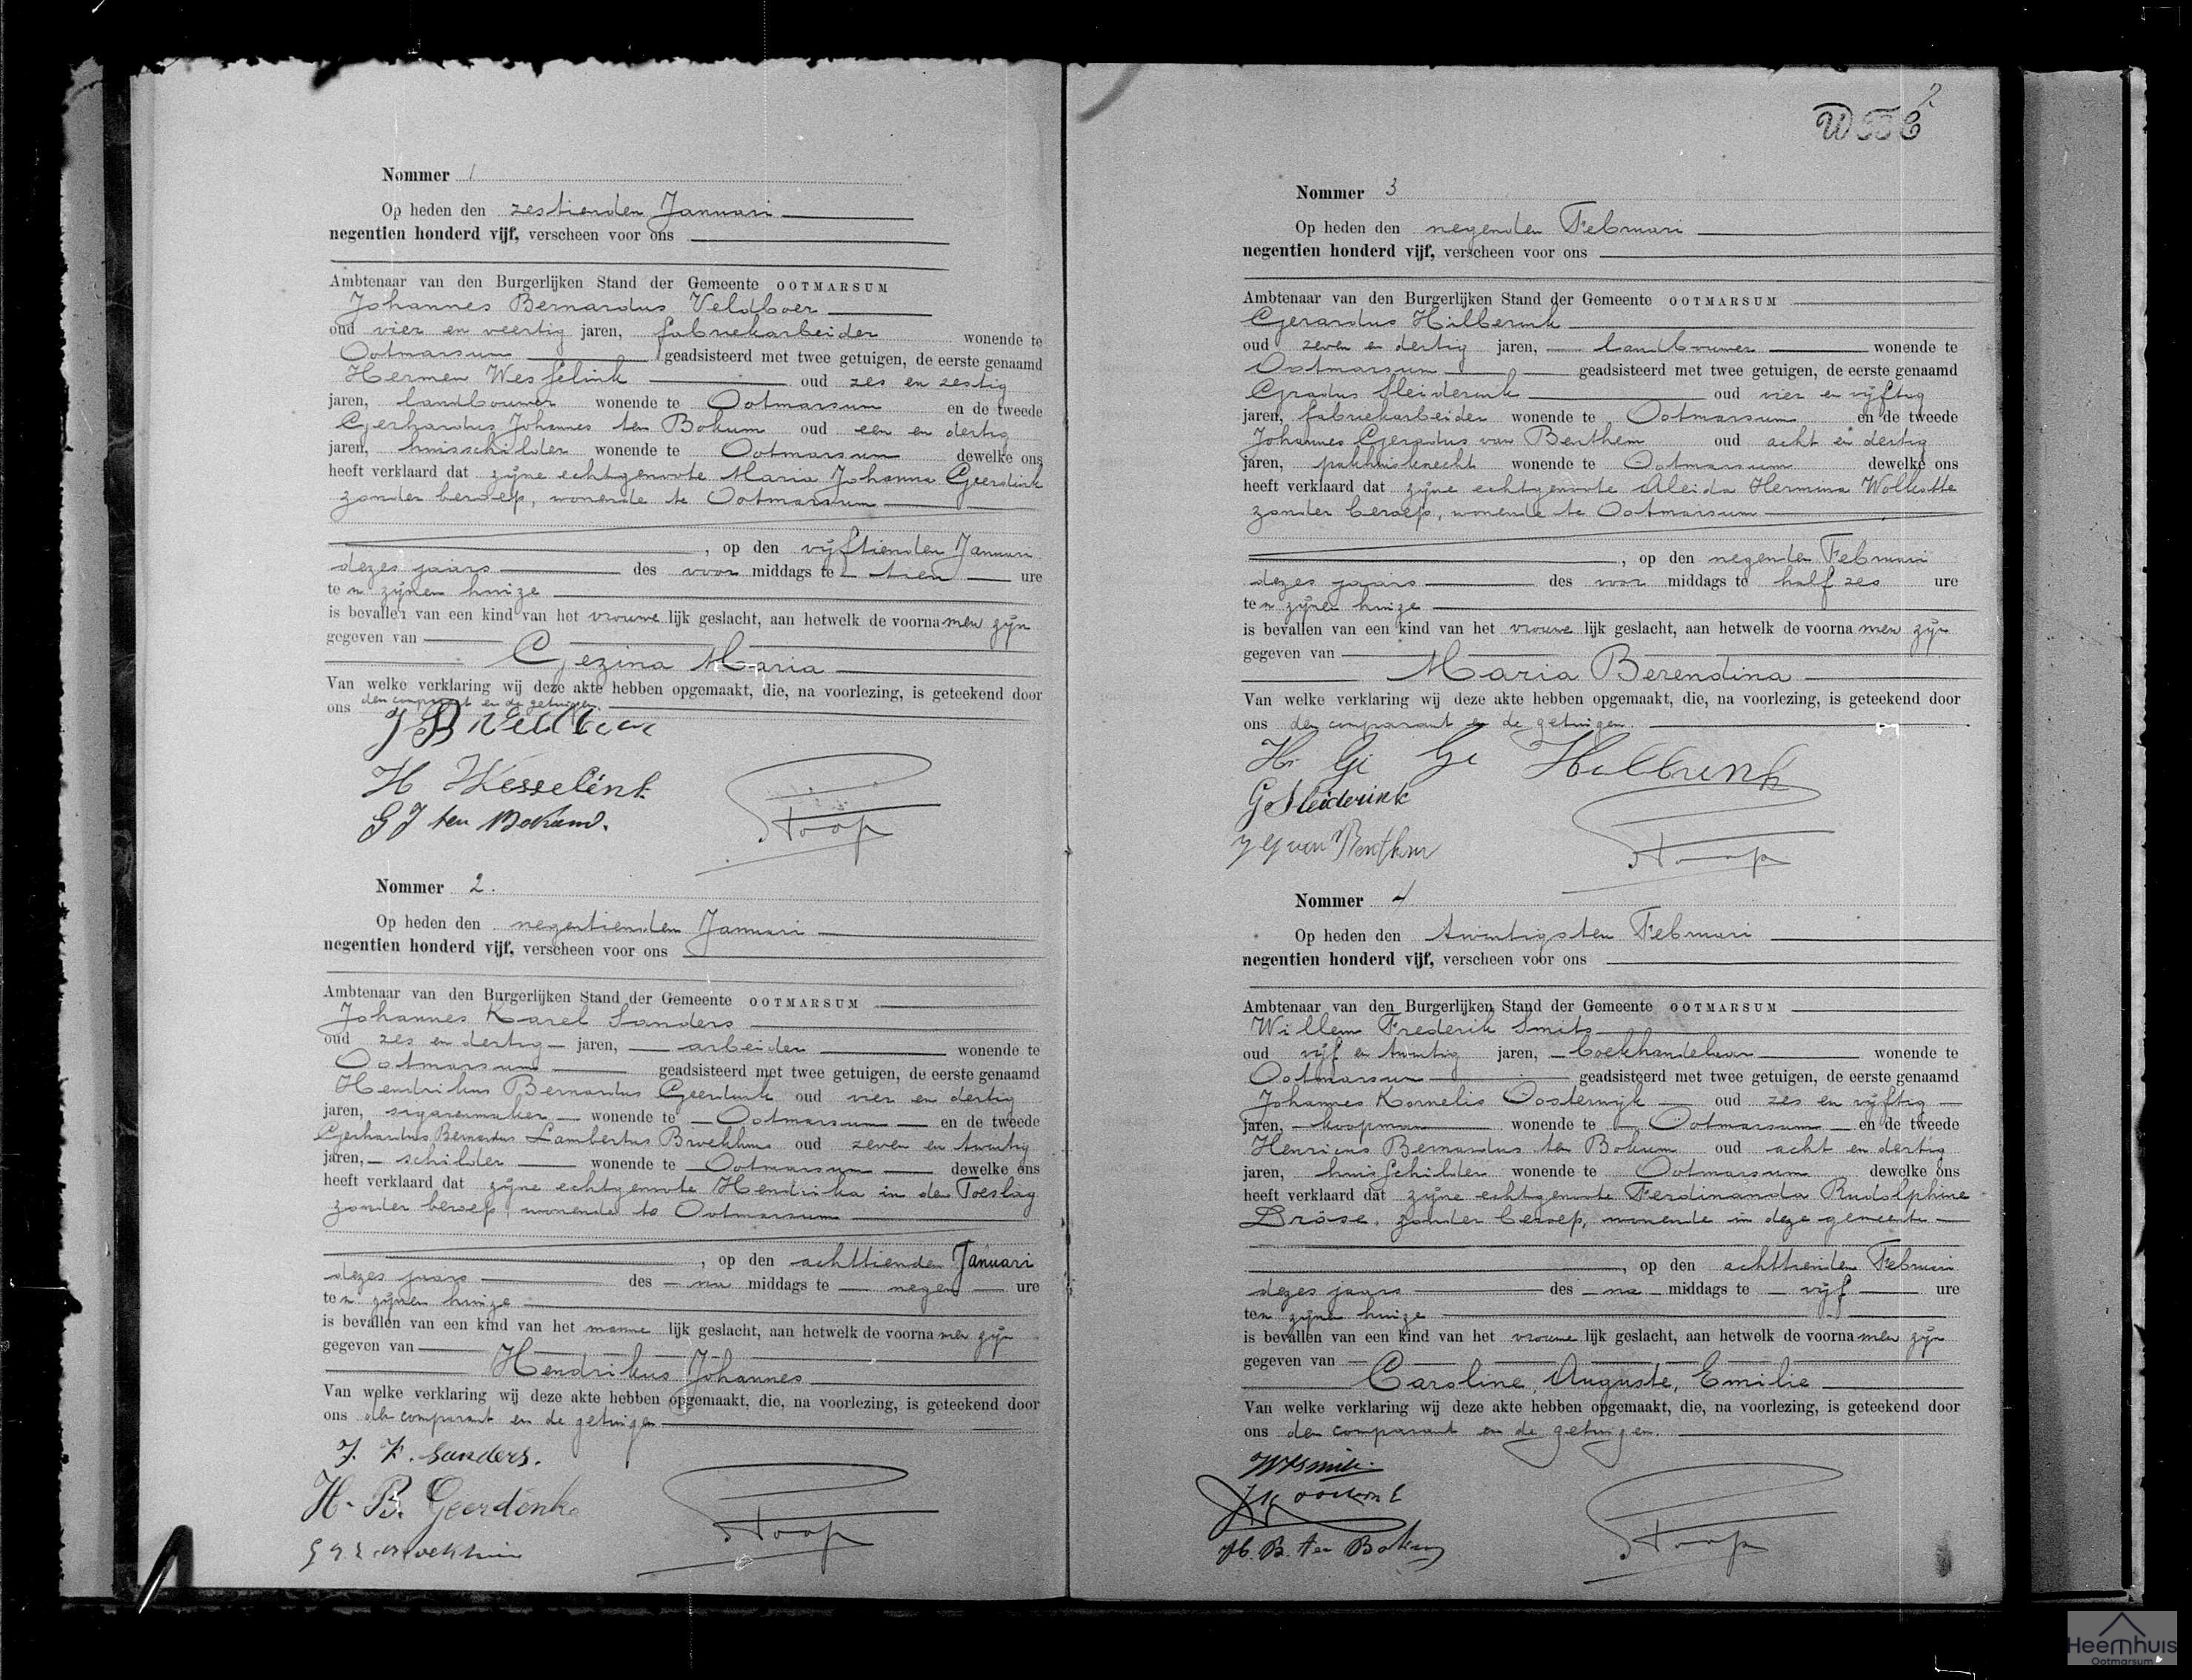 Nommer 1
Op heden den zestienden Januari
negentien honderd vijf, verscheen voor ons
Ambtenaar van den Burgerlijken Stand der Gemeente OOTMARSUM
Johannes Bernardus Veldboer
oud vier en veertig jaren, fabriekarbeider wonende te
Ootmarsum geadsisteerd met twee getuigen, de eerste genaamd
Hermen Wesselink oud zes en zestig
jaren, landbouwer wonende te Ootmarsum en de tweede
Gerhardus Johannes ten Bokum oud een en dertig
jaren, huisschilder wonende te Ootmarsum dewelke ons
heeft verklaard dat zijne echtgenoote Maria Johanna Geerdink
zonder beroep, wonende te Ootmarsum
, op den vijftienden Januari
dezes jaars des voor middags te tien ure
ten zijnen huize
is bevallen van een kind van het vrouwelijk geslacht, aan hetwelk de voornamen zijn
gegeven van
Gezina Maria
Van welke verklaring wij deze akte hebben opgemaakt, die, na voorlezing, is geteekend door
ons den comparant en de getuigen.
J B Veldboer
H Wesselink
G J ten Bokum.
Stoop
Nommer 2.
Op heden den negentienden Januari
negentien honderd vijf, verscheen voor ons
Ambtenaar van den Burgerlijken Stand der Gemeente OOTMARSUM
Johannes Karel Sanders
oud zes en dertig jaren, arbeider wonende te
Ootmarsum geadsisteerd met twee getuigen, de eerste genaamd
Hendrikus Bernardus Geerdink oud vier en dertig
jaren, sigarenmaker wonende te Ootmarsum en de tweede
Gerhardus Bernardus Lambertus Broekhuis oud zeven en twintig
jaren, schilder wonende te Ootmarsum dewelke ons
heeft verklaard dat zijne echtgenoote Hendrika in den Toeslag
zonder beroep, wonende te Ootmarsum
, op den achttienden Januari
dezes jaars des na middags te negen ure
ten zijnen huize
is bevallen van een kind van het mannelijk geslacht, aan hetwelk de voornamen zijn
gegeven van
Hendrikus Johannes
Van welke verklaring wij deze akte hebben opgemaakt, die, na voorlezing, is geteekend door
ons den comparant en de getuigen
J. K. Sanders.
H. B. Geerdink
Stoop
2
Nommer 3
Op heden den negenden Februari
negentien honderd vijf, verscheen voor ons
Ambtenaar van den Burgerlijken Stand der Gemeente OOTMARSUM
Gerardus Hilberink
oud zeven en dertig jaren, landbouwer wonende te
Ootmarsum geadsisteerd met twee getuigen, de eerste genaamd
Gradus Sleiderink oud vier en vijftig
jaren, fabriekarbeider wonende te Ootmarsum en de tweede
Johannes Gerardus van Benthem oud acht en dertig
jaren, pakhuisknecht wonende te Ootmarsum dewelke ons
heeft verklaard dat zijne echtgenoote Aleida Hermina Wolkotte
zonder beroep, wonende te Ootmarsum
, op den negenden Februari
dezes jaars des voor middags te half zes ure
ten zijnen huize
is bevallen van een kind van het vrouwelijk geslacht, aan hetwelk de voornamen zijn
gegeven van
Maria Berendina
Van welke verklaring wij deze akte hebben opgemaakt, die, na voorlezing, is geteekend door
ons den comparant en de getuigen.
Hilbrink
G Sleiderink
J G van Benthem
Stoop
Nommer 4
Op heden den twintigsten Februari
negentien honderd vijf, verscheen voor ons
Ambtenaar van den Burgerlijken Stand der Gemeente OOTMARSUM
Willem Frederik Smits
oud vijf en twintig jaren, boekhandelaar wonende te
Ootmarsum geadsisteerd met twee getuigen, de eerste genaamd
Johannes Kornelis Oosterwijk oud zes en vijftig
jaren, koopman wonende te Ootmarsum en de tweede
Henricus Bernardus ten Bokum oud acht en dertig
jaren, huisschilder wonende te Ootmarsum dewelke ons
heeft verklaard dat zijne echtgenoote Ferdinanda Rudolphine
Dröse, zonder beroep, wonende in deze gemeente
, op den achttienden Februari
dezes jaars des na middags te vijf ure
ten zijnen huize
is bevallen van een kind van het vrouwelijk geslacht, aan hetwelk de voornamen zijn
gegeven van
Caroline, Auguste, Emilie
Van welke verklaring wij deze akte hebben opgemaakt, die, na voorlezing, is geteekend door
ons den comparant en de getuigen.
WFSmits.
H. B. ten Bokum
Stoop
Heemhuis
Ootmarsum